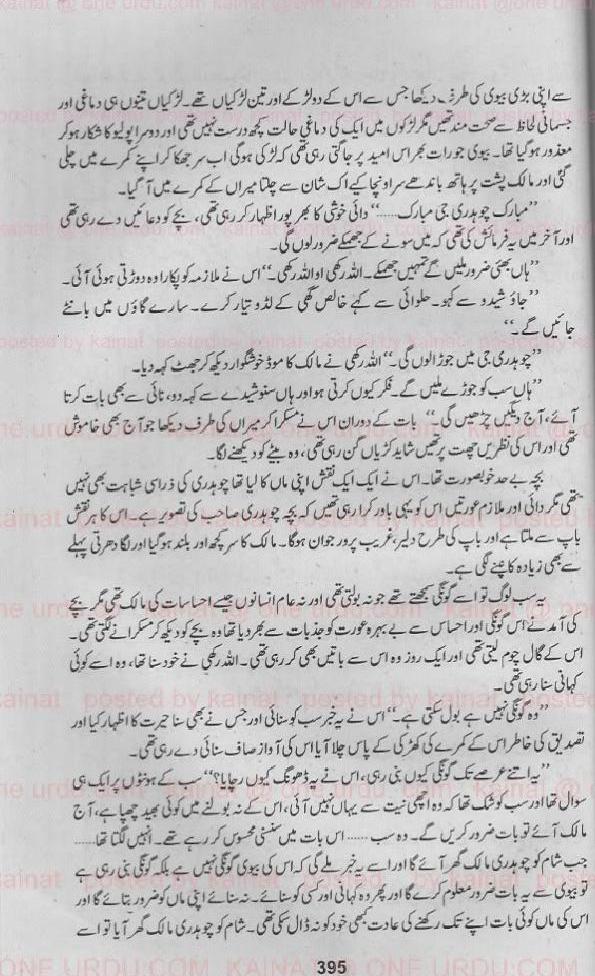 سے اپنی بڑی بیوی کی طرف دیکھا جس سے اس کے دو لڑکے اور تین لڑکیاں تھے۔ لڑکیاں تینوں ہی دماغی اور
جسمانی لحاظ سے صحت مند تھیں مگر لڑکوں میں ایک کی دماغی حالت کچھ درست نہیں تھی اور دوسرا پولیو کا شکار ہو کر
معذور ہو گیا تھا۔ بیوی جو رات بھر اس امید پر جاگتی رہی تھی کہ لڑکی ہوگی اب سر جھکا کر اپنے کمرے میں چلی
گئی اور مالک پشت پر ہاتھ باندھے سر اونچا کیے اک شان سے چلتا میراں کے کمرے میں آ گیا۔
”مبارک چوہدری جی مبارک......“ دائی خوشی کا بھرپور اظہار کر رہی تھی، بچے کو دعائیں دے رہی تھی
اور آخر میں یہ فرمائش کی تھی کہ میں سونے کے جھمکے ضرور لوں گی۔
”ہاں بھئی ضرور ملیں گے تمہیں جھمکے۔ اللہ رکھی او اللہ رکھی۔“ اس نے ملازمہ کو پکارا وہ دوڑتی ہوئی آئی۔
”جاؤ شیدو سے کہو۔ حلوائی سے کہے خالص گھی کے لڈو تیار کرے۔ سارے گاؤں میں بانٹے
جائیں گے۔“
”چوہدری جی میں جوڑا لوں گی۔“ اللہ رکھی نے مالک کا موڈ خوشگوار دیکھ کر جھٹ کہہ دیا۔
”ہاں سب کو جوڑے ملیں گے۔ فکر کیوں کرتی ہو اور ہاں سنو شیدے سے کہہ دو، نائی سے بھی بات کرتا
آئے، آج دیگیں چڑھیں گی۔“ بات کے دوران اس نے مسکرا کر میراں کی طرف دیکھا جو آج بھی خاموش
تھی اور اس کی نظریں چھت پر تھیں شاید کڑیاں گن رہی تھی، وہ بیٹے کو دیکھنے لگا۔
بچہ بے حد خوبصورت تھا۔ اس نے ایک ایک نقش اپنی ماں کا لیا تھا چوہدری کی ذرا سی شباہت بھی نہیں
تھی مگر دائی اور ملازم عورتیں اس کو یہی باور کرا رہی تھیں کہ بچہ چوہدری صاحب کی تصویر ہے۔ اس کا ہر نقش
باپ سے ملتا ہے اور باپ کی طرح دلیر، غریب پرور جوان ہوگا۔ مالک کا سر کچھ اور بلند ہو گیا اور لگا دھرتی پہلے
سے بھی زیادہ کانپنے لگی ہے۔
یہ سب لوگ تو اسے گونگی سمجھتے تھے جو نہ بولتی تھی اور نہ عام انسانوں جیسے احساسات کی مالک تھی مگر بچے
کی آمد نے اس گونگی اور احساس سے بے بہرہ عورت کو جذبات سے بھر دیا تھا وہ بچے کو دیکھ کر مسکرانے لگتی تھی۔
اس کے گال چوم لیتی تھی اور ایک روز وہ اس سے باتیں بھی کر رہی تھی۔ اللہ رکھی نے خود سنا تھا، وہ اسے کوئی
کہانی سنا رہی تھی۔
”وہ گونگی نہیں ہے بول سکتی ہے۔“ اس نے یہ خبر سب کو سنائی اور جس نے بھی سنا حیرت کا اظہار کیا اور
تصدیق کی خاطر اس کے کمرے کی کھڑکی کے پاس چلا آیا اس کی آواز صاف سنائی دے رہی تھی۔
”یہ اتنے عرصے تک گونگی کیوں بنی رہی، اس نے یہ ڈھونگ کیوں رچایا؟“ سب کے ہونٹوں پر ایک ہی
سوال تھا اور سب کو شک تھا کہ وہ اچھی نیت سے یہاں نہیں آئی، اس کے نہ بولنے میں کوئی بھید چھپا ہے، آج
مالک آئے تو بات ضرور کریں گے۔ وہ سب ...... اس بات میں سنسنی محسوس کر رہے تھے۔ انہیں لگتا تھا......
جب شام کو چوہدری مالک گھر آئے گا اور اسے یہ خبر ملے گی کہ اس کی بیوی گونگی نہیں ہے بلکہ گونگی بنی رہی ہے
تو بیوی سے یہ بات ضرور معلوم کرے گا اور پھر وہ کہانی اور کسی کو سنائے۔ نہ سنائے اپنی ماں کو ضرور بتائے گا اور
اس کی ماں کوئی بات اپنے تک رکھنے کی عادت کبھی خود کو نہ ڈال سکی تھی۔ شام کو چوہدری مالک گھر آیا تو اسے
395
posted by kainat
kainat @ one urdu.com